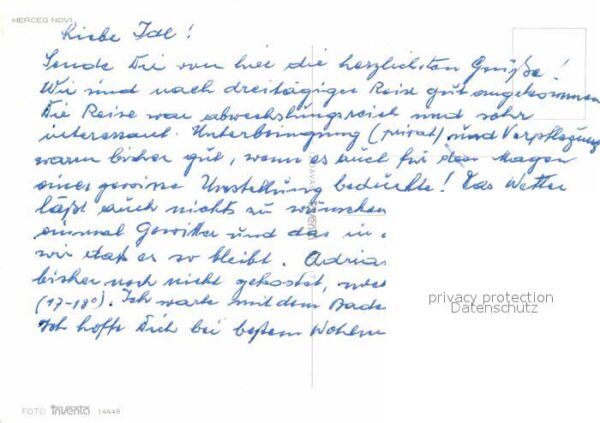 HERCEG NOVI
Liebe Idl!
Sende Dir von hier die herzlichsten Grüße!
Wir sind nach dreitägiger Reise gut angekommen
Die Reise war abwechslungsreich und sehr
interessant. Unterbringung (privat) und Verpflegung
waren bisher gut, wenn es auch für den Magen
einer gewisse Umstellung bedurfte! Das Wetter
läßt auch nichts zu wünschen
einmal Gewitter und das in
wir daß er so bleibt. Adria
bisher noch nicht gekostet,
(17-18°). Ich warte mit dem Bade
Ich hoffe Dich bei bestem Wohlen
privacy protection
Datenschutz
FOTO inventa 14449